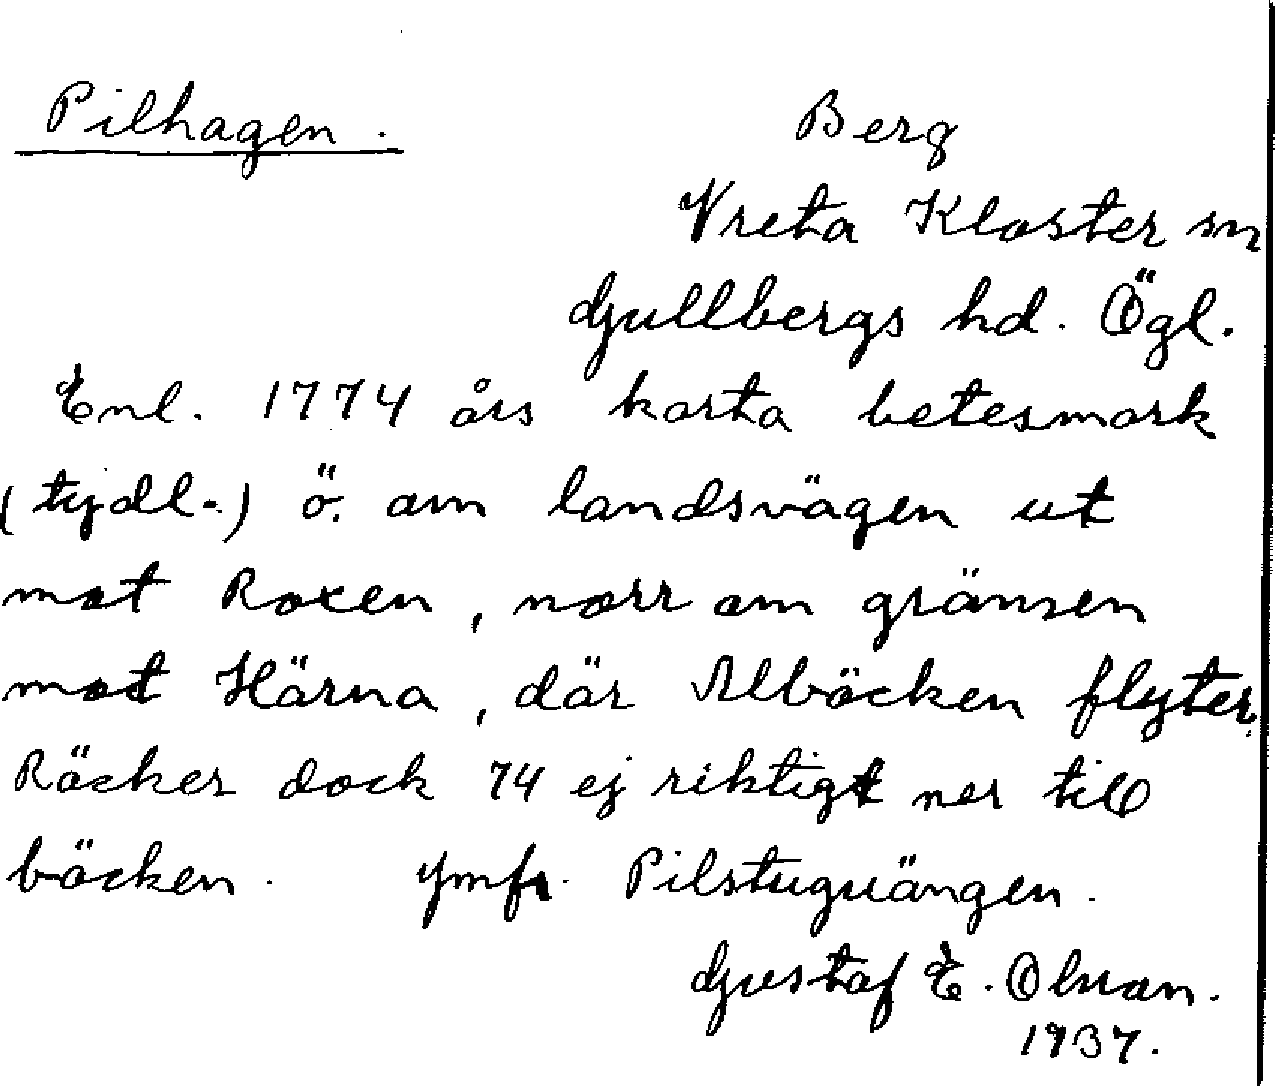 Pilhagen.
Berg
Vreta Kloster sn
Gullbergs hd. Ögl.
Enl. 1774 års karta betesmark
(tydl.) ö. om landsvägen ut
mot Roxen, norr om gränsen
mot Härna, där Albäcken flyter.
Räcker dock 74 ej riktigt ner till
bäcken. Jmfr. Pilstuguängen.
Gustaf E. Olsson.
1937.